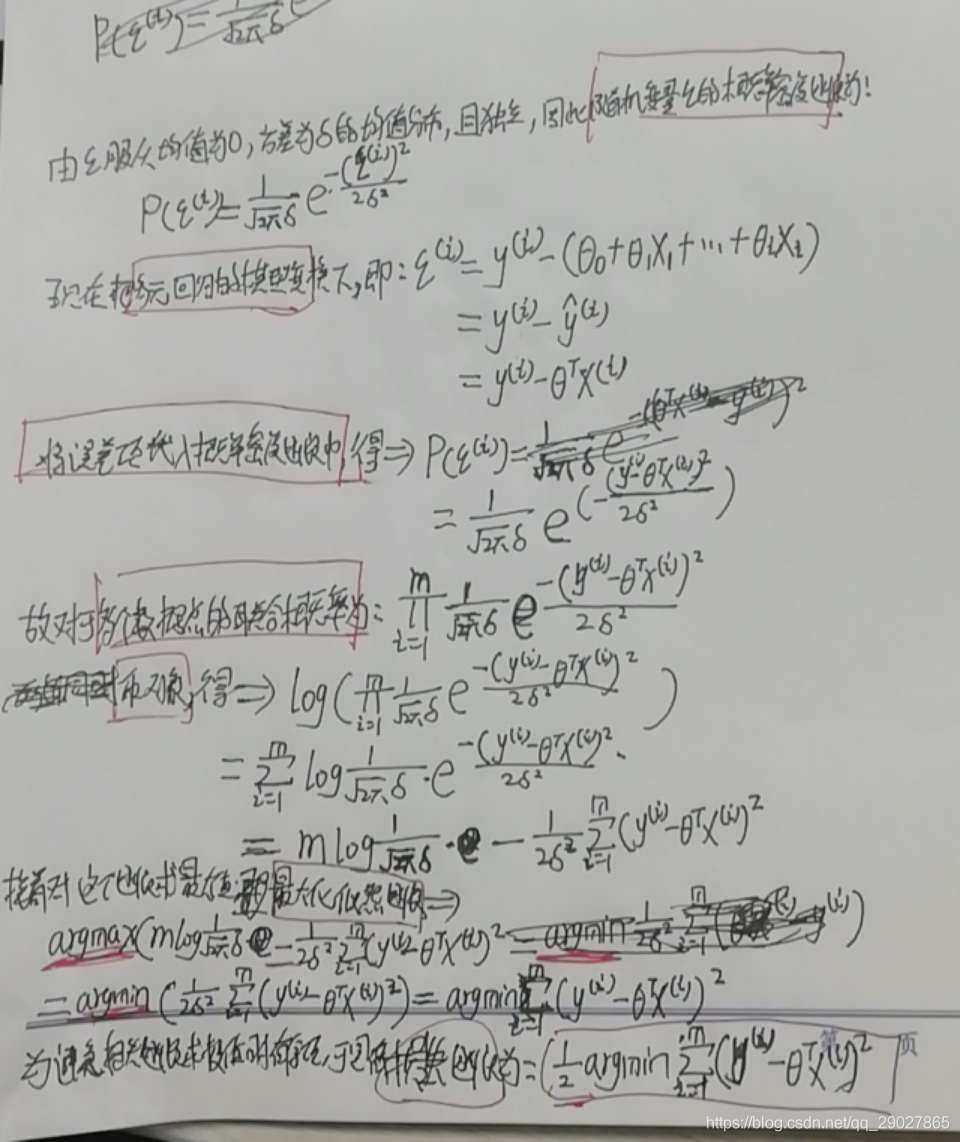 P(ε^(i)) = 1/(√2π δ) e
由ε服从均值为0,方差为δ的均值分布,且独立,因此随机变量ε的概率密度函数为!
P(ε^(i)) = 1/(√2π δ) e^(-(ε^(i))²/2δ²)
现在把多元回归的模型变换下,即:ε^(i) = y^(i) - (θ₀+θ₁X₁+…+θᵢXᵢ)
= y^(i) - ŷ^(i)
= y^(i) - θᵀX^(i)
将误差项代入概率密度函数中,得⇒ P(ε^(i)) =
= 1/(√2π δ) e^(-(y^(i)-θᵀX^(i))²/2δ²)
故对于各个数据点的联合概率为: ∏_{i=1}^{m} 1/(√2π δ) e^(-(y^(i)-θᵀX^(i))²/2δ²)
取对数,得⇒ log(∏_{i=1}^{m} 1/(√2π δ) e^(-(y^(i)-θᵀX^(i))²/2δ²))
= ∑_{i=1}^{m} log 1/(√2π δ) · e^(-(y^(i)-θᵀX^(i))²/2δ²)
= m log 1/(√2π δ) · - 1/2δ² ∑_{i=1}^{m} (y^(i)-θᵀX^(i))²
接着对这个函数求最大值 最大化似然函数⇒
argmax(m log 1/(√2π δ) - 1/2δ² ∑_{i=1}^{m} (y^(i)-θᵀX^(i))²
= argmin(1/2δ² ∑_{i=1}^{m} (y^(i)-θᵀX^(i))²) = argmin ∑_{i=1}^{m} (y^(i)-θᵀX^(i))²
为避免相关函数求极值时 函数为=(1/2 argmin ∑_{i=1}^{m} (y^(i)-θᵀX^(i))²
第 页
https://blog.csdn.net/qq_29027865